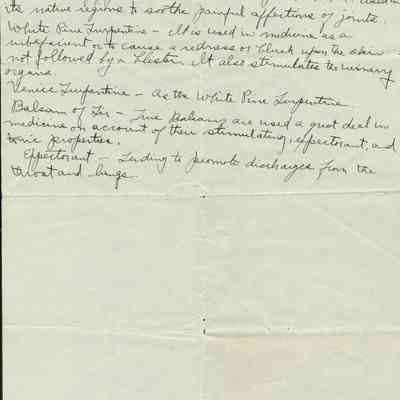 its native regions to soothe painful affections of joints.
White Pine Turpentine - It is used in medicine as a
rubefacient or to cause a redness or blush upon the skin
not followed by a blister. It also stimulates the urinary
organs.
Venice Turpentine - As the White Pine Turpentine
Balsam of Fir - True Balsams are used a great deal in
medicine on account of their stimulating, expectorant, and
tonic properties.
Expectorant - Tending to promote discharges from the
throat and lungs.